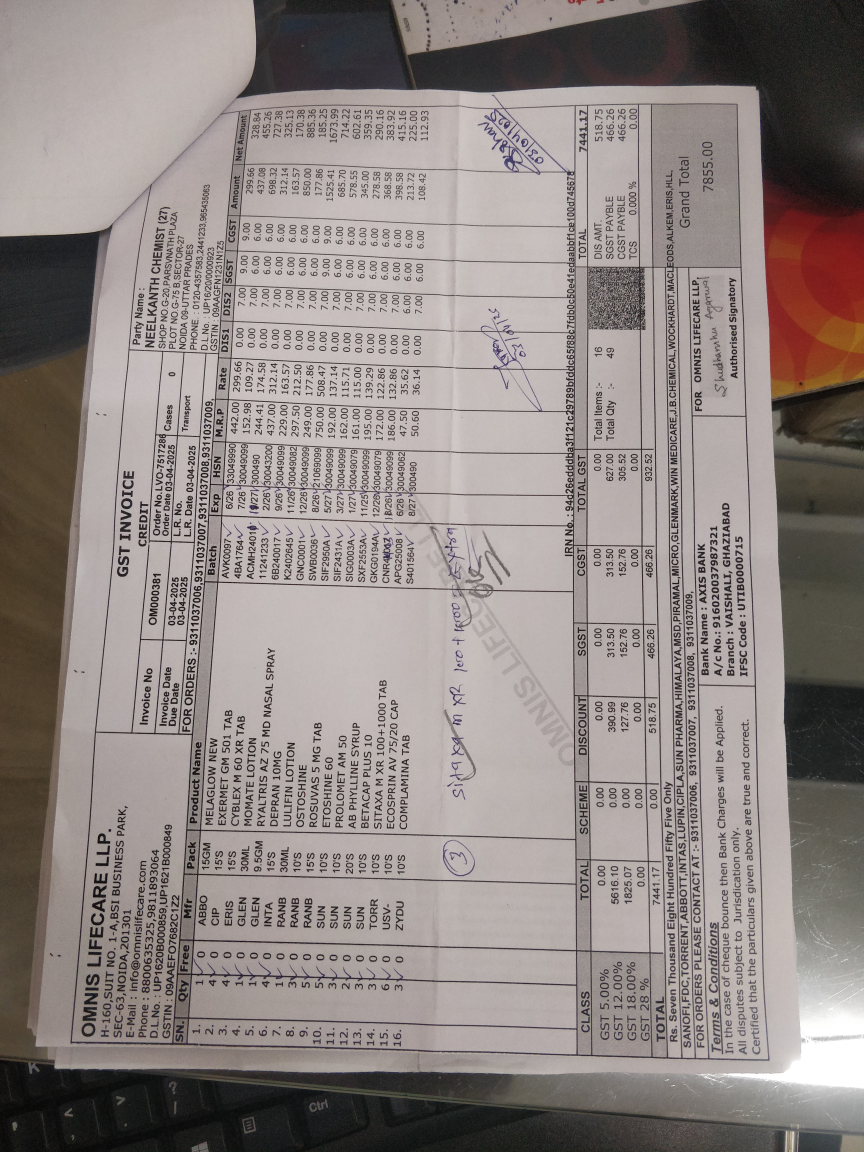 OMNIS LIFECARE LLP.
H-160,SUIT NO. 1-A,BSI BUSINESS PARK,
SEC-63,NOIDA,201301
E-Mail : info@omnislifecare.com
Phone : 8800635325,9811893064
D.L.No. : UP1620B000859,UP1621B000849
GSTIN : 09AAEFO7682C1ZZ
GST INVOICE
CREDIT
Invoice No OM000381 Order No. LVO-7517286
Order Date 03-04-2025 Cases 0
Invoice Date 03-04-2025 L.R. No. Transport
Due Date 03-04-2025 L.R. Date 03-04-2025
FOR ORDERS :- 9311037006,9311037007,9311037008,9311037009,
Party Name :
NEELKANTH CHEMIST (27)
SHOP NO.G-20,PARSVNATH PLAZA
PLOT NO.G-75 B,SECTOR-27
NOIDA 09-UTTAR PRADES
PHONE : 0120-4357583,2441233,965435063
D.L.No. : UP16/20/0000923
GSTIN : 09AAGFN1231N1Z5
SN. Qty Free Mfr Pack Product Name Batch Exp HSN M.R.P Rate DIS1 DIS2 SGST CGST Amount Net Amount
1. 1 0 ABBO 15GM MELAGLOW NEW AVK0097 6/26 33049990 442.00 299.66 0.00 7.00 9.00 9.00 299.66 328.84
2. 4 0 CIP 15'S EXERMET GM 501 TAB 4BA1764 7/26 30049099 152.98 109.27 0.00 7.00 6.00 6.00 437.08 455.26
3. 4 0 ERIS 15'S CYBLEX M 60 XR TAB ACMH24010 300490 244.41 174.58 0.00 7.00 6.00 6.00 698.32 727.38
4. 1 0 GLEN 30ML MOMATE LOTION 11241233 2/26 30043200 437.00 312.14 0.00 7.00 6.00 6.00 312.14 325.13
5. 1 0 GLEN 9.5GM RYALTRIS AZ 75 MD NASAL SPRAY 6B240017 9/26 30049099 229.00 163.57 0.00 7.00 6.00 6.00 163.57 170.38
6. 4 0 INTA 15'S DEPRAN 10MG K2402645 11/26 30049082 297.50 212.50 0.00 7.00 6.00 6.00 850.00 885.36
7. 1 0 RANB 30ML LULIFIN LOTION GNC0001 12/26 30049099 249.00 177.86 0.00 7.00 6.00 6.00 177.86 185.25
8. 3 0 RANB 10'S OSTOSHINE SWB0036 8/26 21069099 750.00 508.47 0.00 7.00 9.00 9.00 1525.41 1673.99
9. 5 0 RANB 15'S ROSUVAS 5 MG TAB SIF2950A 5/27 30049099 192.00 137.14 0.00 7.00 6.00 6.00 685.70 714.22
10. 5 0 SUN 10'S ETOSHINE 60 SIF2431A 3/27 30049099 162.00 115.71 0.00 7.00 6.00 6.00 578.55 602.61
11. 3 0 SUN 10'S PROLOMET AM 50 SIG0003A 1/27 30049079 161.00 115.00 0.00 7.00 6.00 6.00 345.00 359.35
12. 2 0 SUN 20'S AB PHYLLINE SYRUP SXF2553A 11/25 30049099 195.00 139.29 0.00 7.00 6.00 6.00 278.58 290.16
13. 3 0 SUN 10'S BETACAP PLUS 10 GKG0194A 12/26 30049079 172.00 122.86 0.00 7.00 6.00 6.00 368.58 383.92
14. 3 0 TORR 10'S SITAXA M XR 100+1000 TAB 8/26 30049099 186.00 132.86 0.00 7.00 6.00 6.00 398.58 415.16
15. 6 0 USV- 10'S ECOSPRIN AV 75/20 CAP APG25008 6/26 30049062 47.50 35.62 0.00 6.00 6.00 6.00 213.72 225.00
16. 3 0 ZYDU 10'S COMPLAMINA TAB S401564 8/27 300490 50.60 36.14 0.00 7.00 6.00 6.00 108.42 112.93
3 Sitaxa M XR 100 + 1000 = Extra
OMNIS LIFECARE L
IRN No. : 94d26edddba3f121c29789bfddc65f88c7fdb0c50e41edaabbf1ce100d745678
CLASS TOTAL SCHEME DISCOUNT SGST CGST TOTAL GST
GST 5.00% 0.00 0.00 0.00 0.00 0.00 0.00
GST 12.00% 5616.10 0.00 390.99 313.50 313.50 627.00
GST 18.00% 1825.07 0.00 127.76 152.76 152.76 305.52
GST 28 % 0.00 0.00 0.00 0.00 0.00 0.00
TOTAL 7441.17 0.00 518.75 466.26 466.26 932.52
Total Items :- 16
Total Qty :- 49
TOTAL 7441.17
DIS AMT. 518.75
SGST PAYBLE 466.26
CGST PAYBLE 466.26
TCS 0.000 % 0.00
Grand Total
7855.00
Rs. Seven Thousand Eight Hundred Fifty Five Only
SANOFI,FDC,TORRENT,ABBOTT,INTAS,LUPIN,CIPLA,SUN PHARMA,HIMALAYA,MSD,PIRAMAL,MICRO,GLENMARK,WIN MEDICARE,J.B.CHEMICAL,WOCKHARDT,MACLEODS,ALKEM,ERIS,HLL,
FOR ORDERS PLEASE CONTACT AT :- 9311037006, 9311037007, 9311037008, 9311037009,
Terms & Conditions
In the case of cheque bounce then Bank Charges will be Applied.
All disputes subject to Jurisdication only.
Certified that the particulars given above are true and correct.
Bank Name : AXIS BANK
A/c No.: 916020037987321
Branch : VAISHALI, GHAZIABAD
IFSC Code : UTIB0000715
FOR OMNIS LIFECARE LLP,
Shudhanshu Agarwal
Authorised Signatory
Ctrl